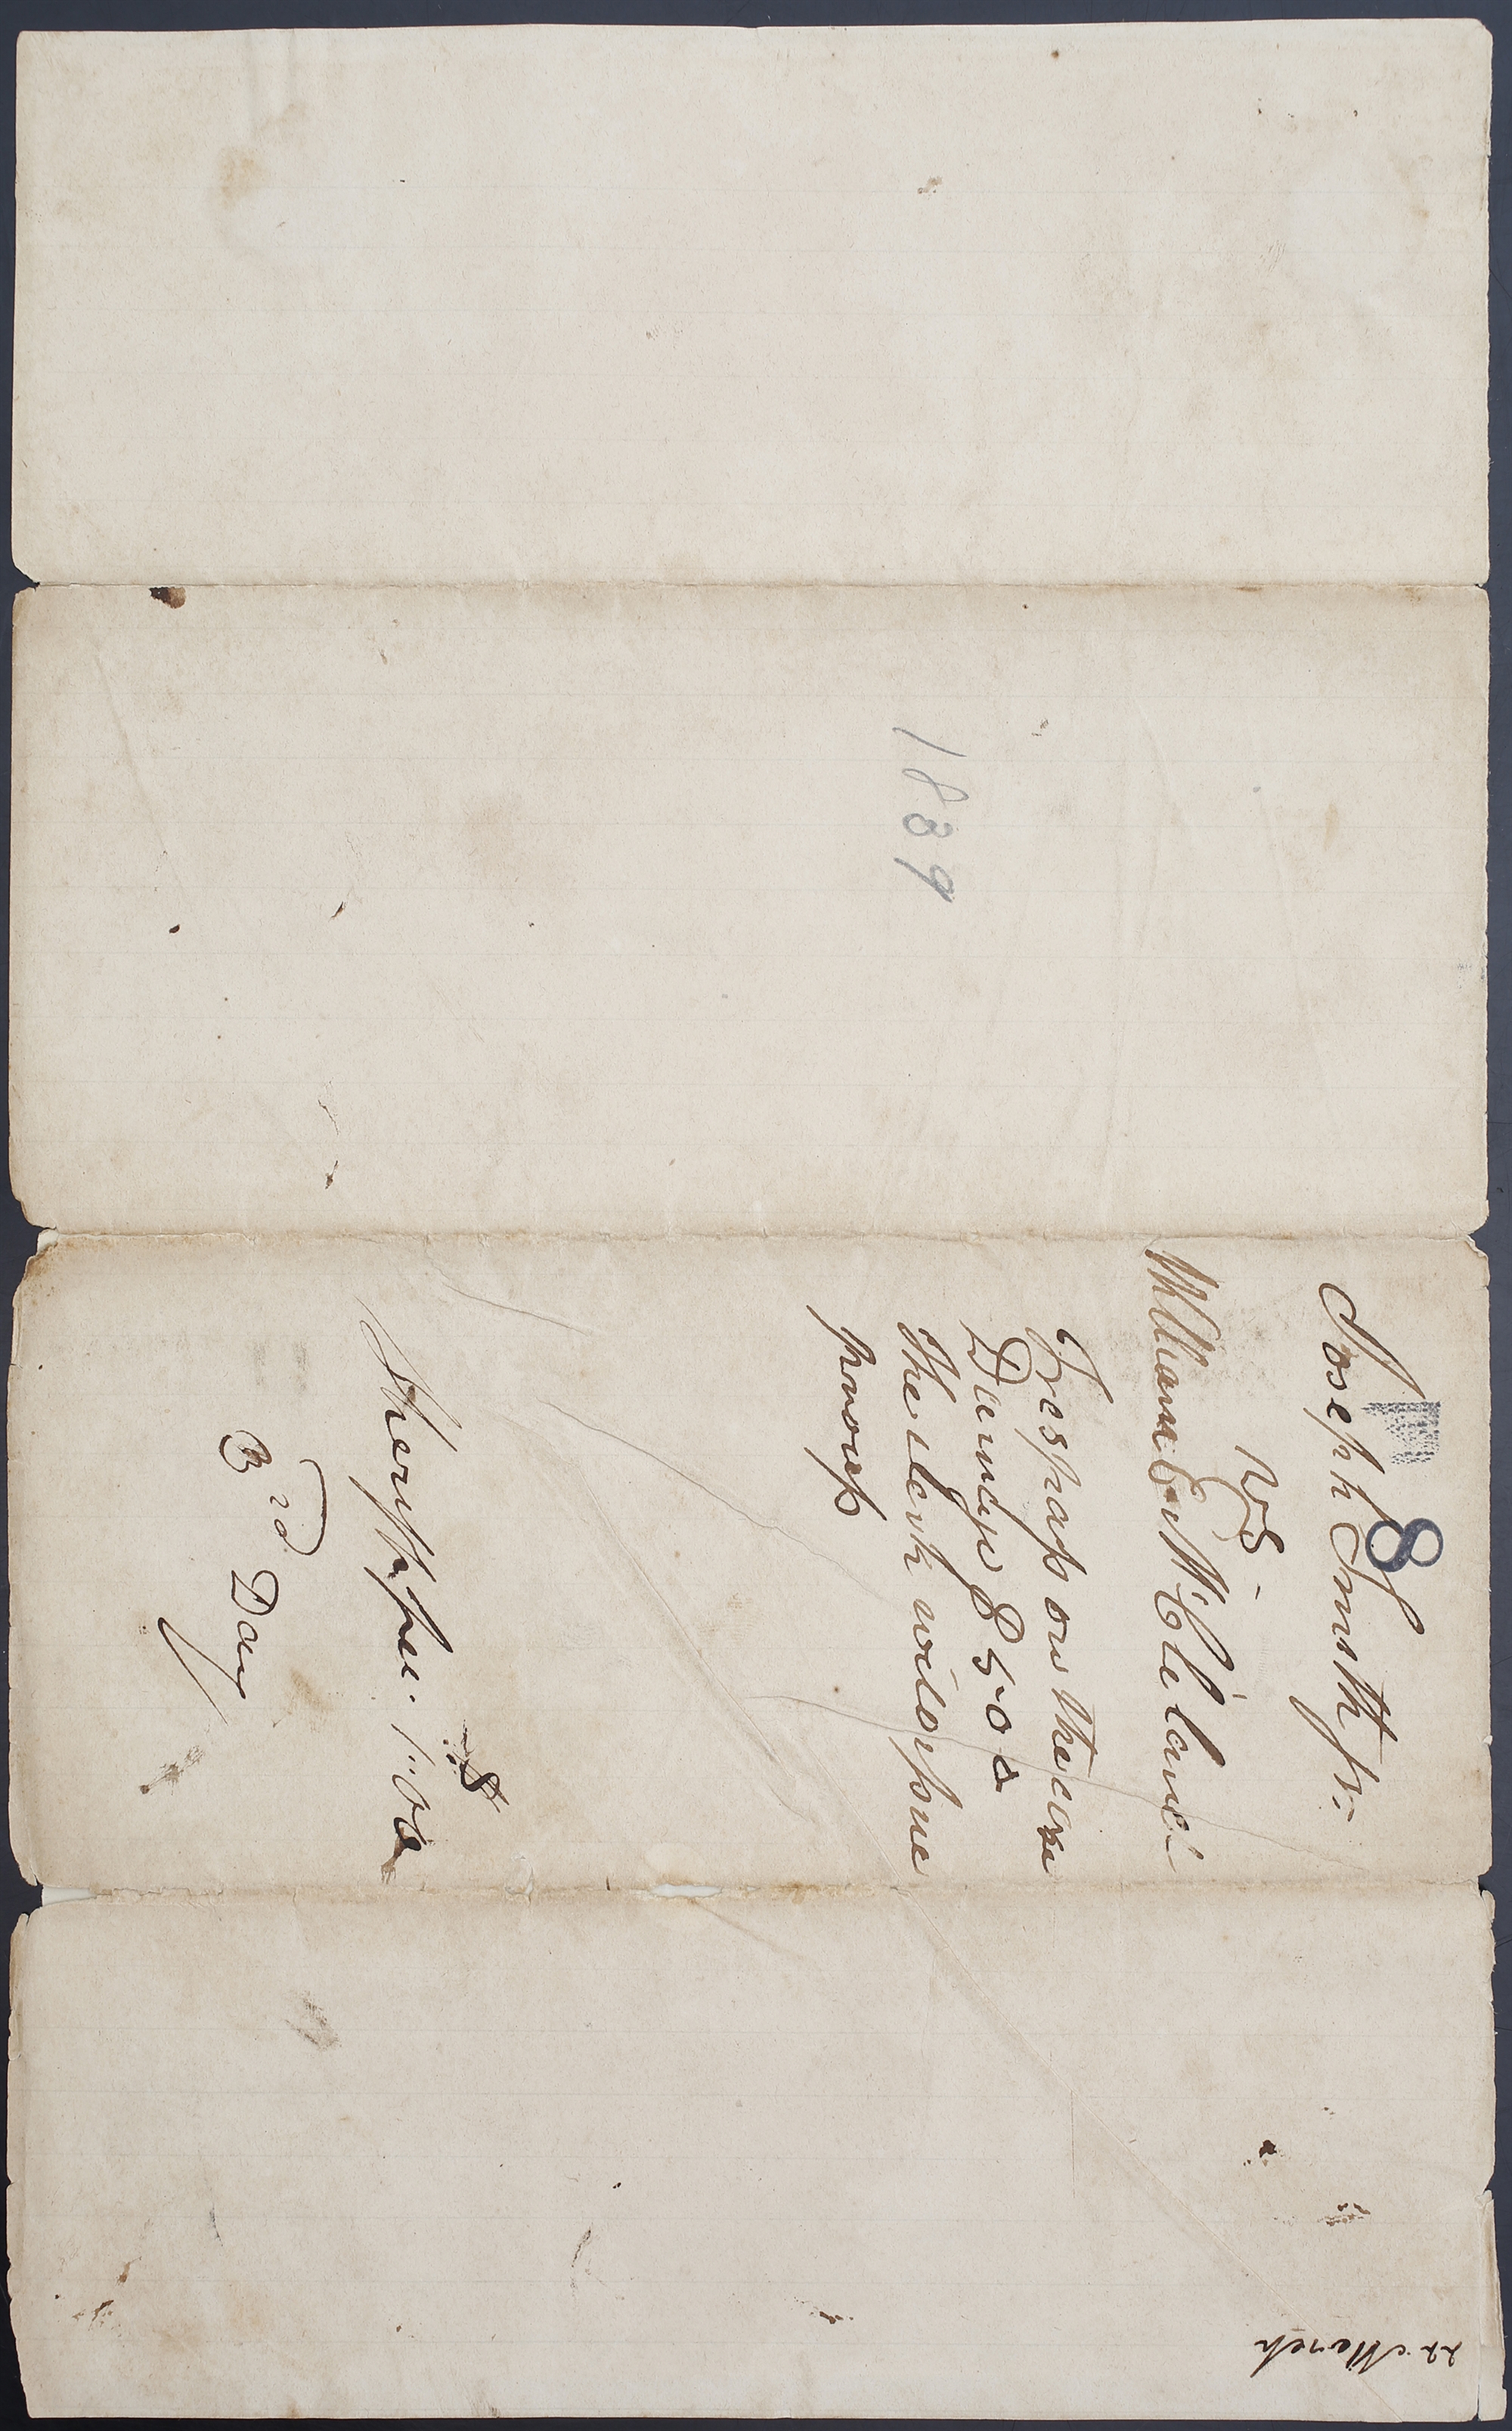 8
Joseph Smith Jr.
vs -
William E. McCleland
Trespass on the case
Damage $500
the clerk will issue
process
Sheriff fee. 1.00
3rd Day
1839
22 March